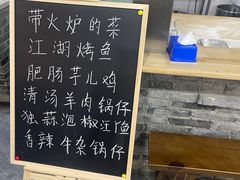 带火炉的菜
江湖烤鱼
肥肠芋儿鸡
清汤羊肉锅仔
独蒜泡椒江鱼
香辣牛杂锅仔